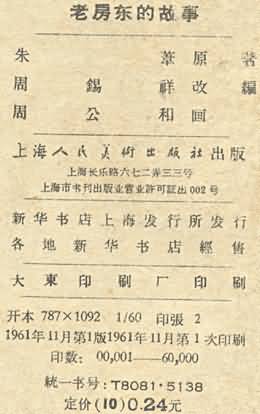 老房东的故事
朱 葦 原 著
周 錫 祥 改 編
周 公 和 画
上海人民美術出版社出版
上海长乐路六七二弄三三号
上海市书刊出版业营业許可証出002号
新华书店上海发行所发行
各地新华书店經售
大東印刷厂印刷
开本 787×1092 1/60 印張 2
1961年11月第1版1961年11月第1次印刷
印数: 00,001—60,000
統一书号:T8081·5138
定价(10)0.24元